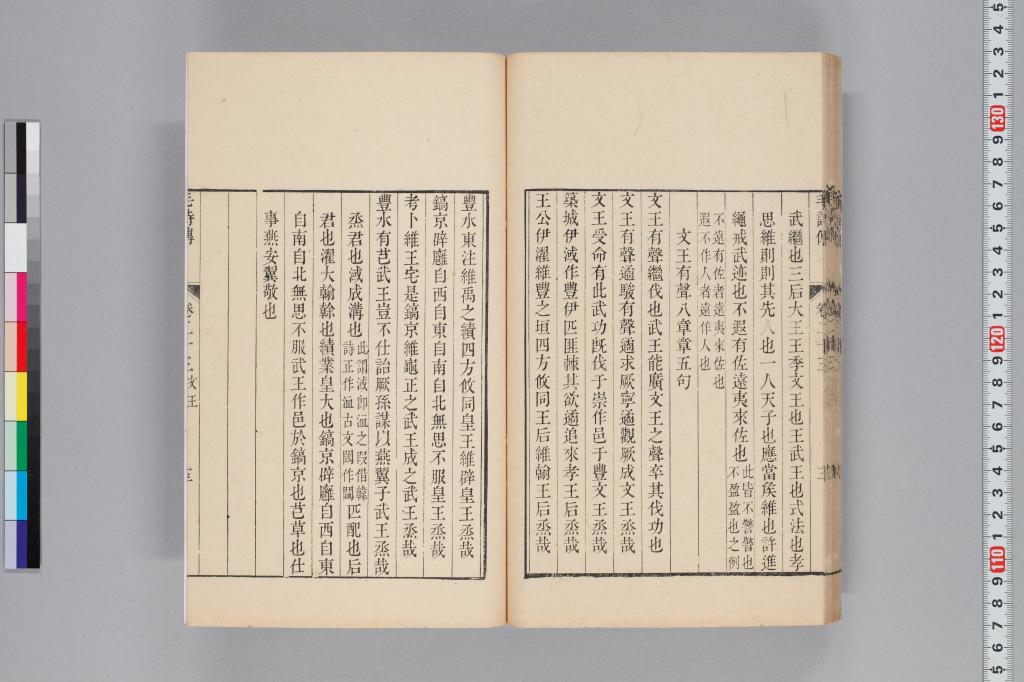 武繼也三后大王王季文王也王武王也式法也孝
思維則則其先人也一人天子也應當矦維也許進
繩戒武迹也不遐有佐遠夷來佐也此皆不警警也
不盈盈也之例
不遠有佐者遠夷來佐也
遐不作人者遠作人也
文王有聲八章章五句
文王有聲繼伐也武王能廣文王之聲卒其伐功也
文王有聲遹駿有聲遹求厥寧遹觀厥成文王烝哉
文王受命有此武功旣伐于崇作邑于豐文王烝哉
築城伊淢作豐伊匹匪棘其欲遹追來孝王后烝哉
王公伊濯維豐之垣四方攸同王后維翰王后烝哉
豐水東注維禹之績四方攸同皇王維辟皇王烝哉
鎬京辟廱自西自東自南自北無思不服皇王烝哉
考卜維王宅是鎬京維龜正之武王成之武王烝哉
豐水有芑武王豈不仕詒厥孫謀以燕翼子武王烝哉
烝君也淢成溝也此謂淢卽洫之叚借韓
詩正作洫古文閾作閾匹配也后
君也濯大翰榦也績業皇大也鎬京辟廱自西自東
自南自北無思不服武王作邑於鎬京也芑草也仕
事燕安翼敬也
毛詩傳
卷二十三 文王